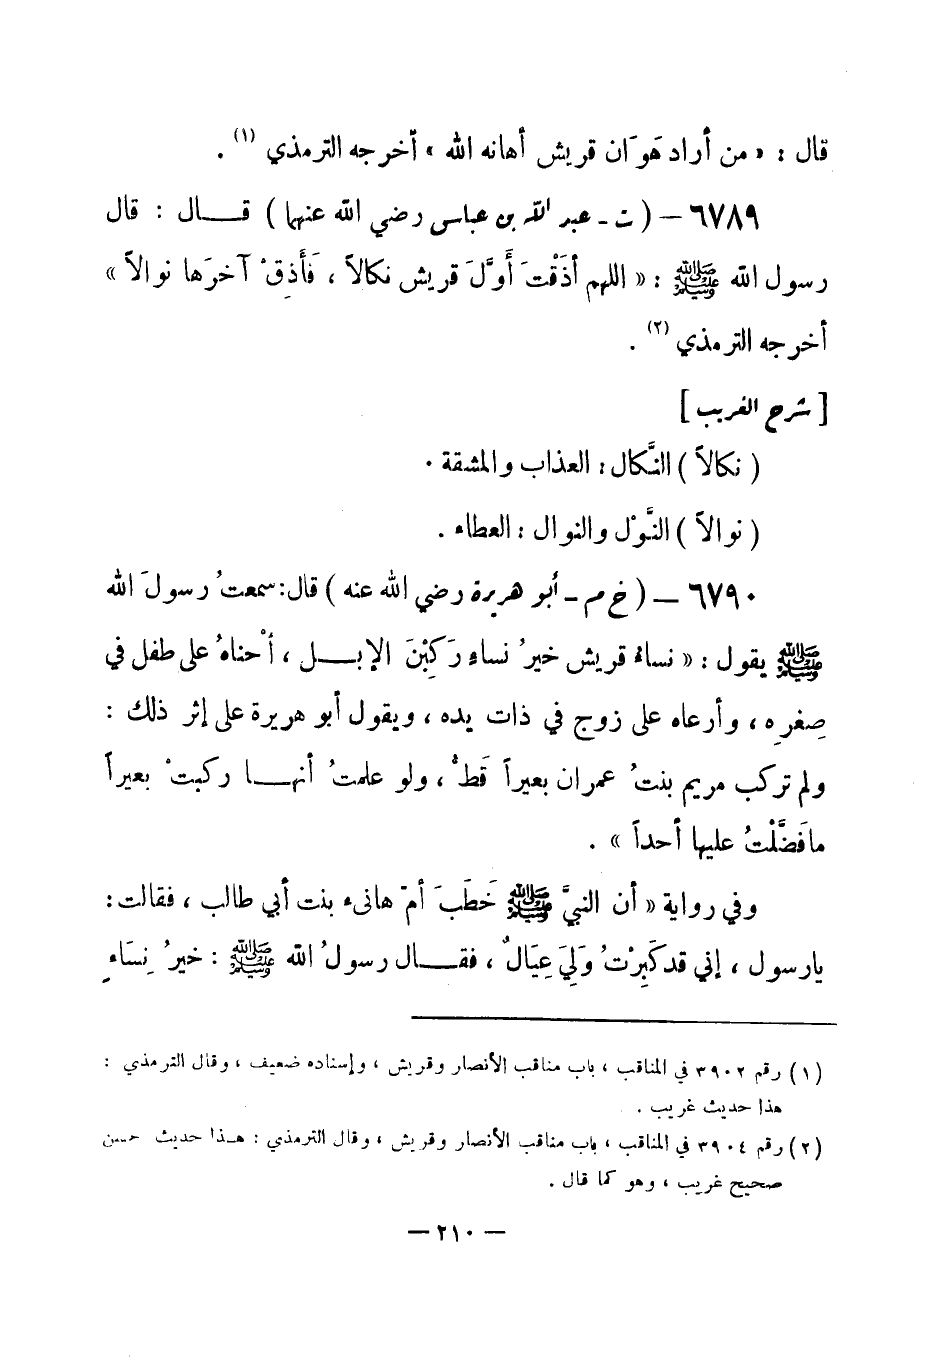 قال : « من أراد هَوَان قريش أهانه الله » أخرجه الترمذي (١) .
٦٧٨٩ – ( ت - عبد الله بن عباس رضي الله عنهما ) قــال : قال
رسول الله ﷺ : « اللهم أذَقْتَ أَوَّلَ قريش نكالاً ، فَأَذِقْ آخرَها نوالاً »
أخرجه الترمذي (٢) .
[ شرح الغريب ]
( نكالاً ) النَّكال : العذاب والمشقة .
( نوالاً ) النَّوْل والنوال : العطاء .
٦٧٩٠ – ( خ م - أبو هريرة رضي الله عنه ) قال : سمعتُ رسولَ الله
ﷺ يقول : « نساءُ قريش خيرُ نساءٍ رَكِبْنَ الإبــل ، أحْناهُ على طفل في
صِغرِه ، وأرعاه على زوج في ذات يده ، ويقول أبو هريرة على إثر ذلك :
ولم تركب مريم بنتُ عمران بعيراً قَطُّ ، ولو علمتُ أنهــا ركبتْ بعيراً
مافَضَّلْتُ عليها أحداً » .
وفي رواية « أن النبيَّ ﷺ خَطَبَ أمّ هانىء بنت أبي طالب ، فقالت :
يارسول ، إني قد كَبِرْتُ وَلِيَ عِيَالٌ ، فقــال رسولُ الله ﷺ : خيرُ نِسَاءٍ
(١) رقم ٣٩٠٢ في المناقب ، باب مناقب الأنصار وقريش ، وإسناده ضعيف ، وقال الترمذي :
هذا حديث غريب .
(٢) رقم ٣٩٠٤ في المناقب ، باب مناقب الأنصار وقريش ، وقال الترمذي : هــذا حديث حسن
صحيح غريب ، وهو كما قال .
– ٢١٠ –